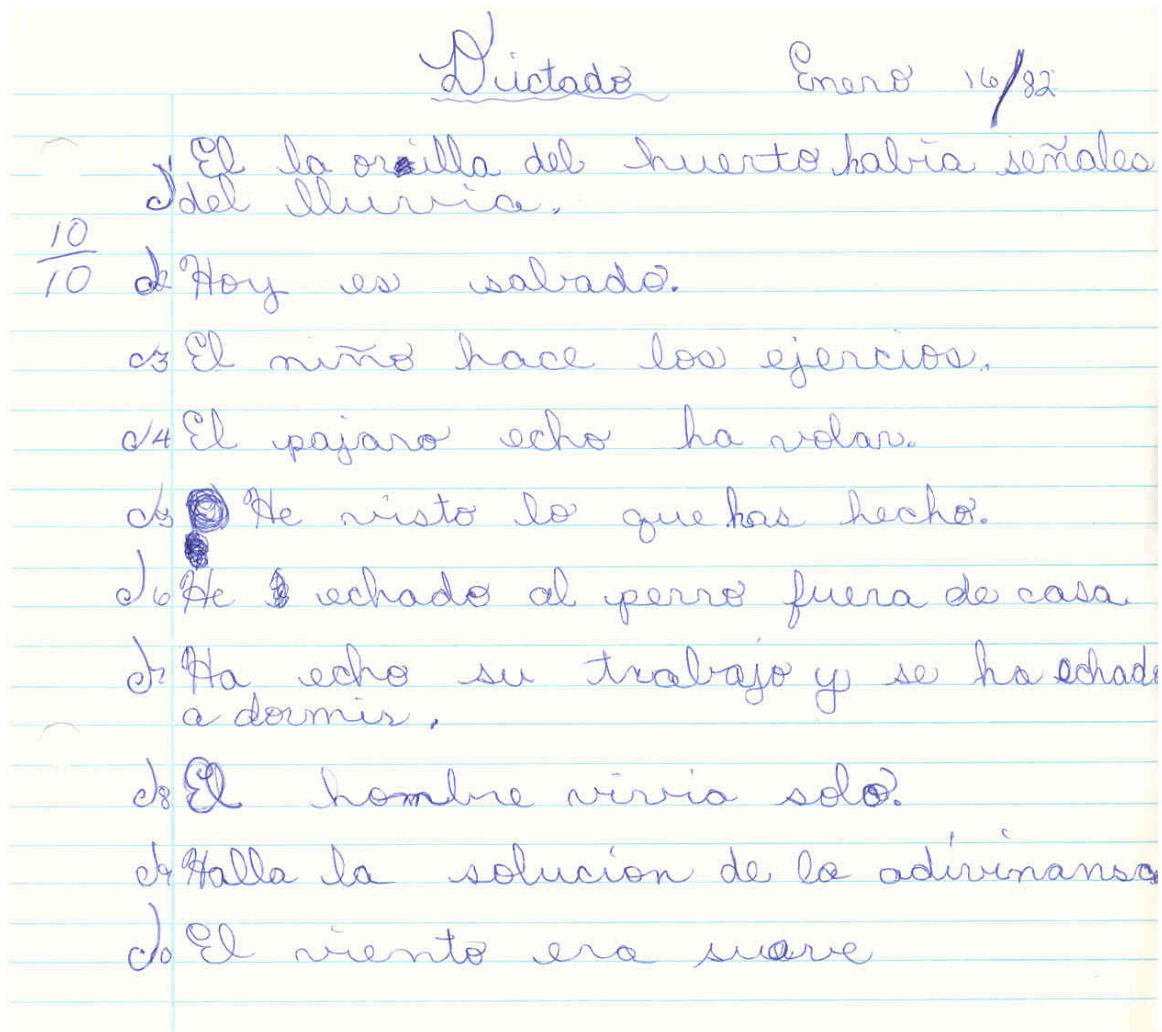 Dictado Enero 16/82
1 El la orilla del huerto habia señales
del lluvia.
10/10
2 Hoy es sabado.
3 El niño hace los ejercios.
4 El pajaro echo ha volar.
5 He visto lo que has hecho.
6 He echado al perro fuera de casa.
7 Ha echo su trabajo y se ha echado
a dormir.
8 El hombre vivia solo.
9 Halla la solucion de la adivinansa
10 El viento era suave